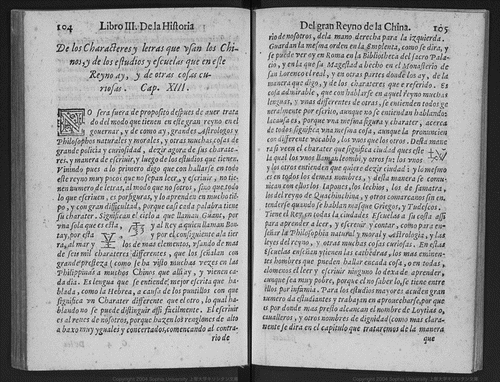 104 Libro III. De la Historia
De los Characteres y letras que vsan los Chi-
nos, y de los estudios y escuelas que en este
Reyno ay, y de otras cosas cu-
riosas. Cap. XIII.
NO sera fuera de proposito despues de auer trata
do del modo que tienen en este gran reyno en el
gouernar, y de como ay, grandes Astrologos y
Philosophos naturales y morales, y otras muchas, cosas de
grande policia y curiosidad, dezir agora de sus charate-
res, y manera de escriuir, y luego de los estudios que tienen.
Viniendo pues a lo primero digo que con hallarse en todo
este reyno muy pocos que no sepan leer, y escriuir, no tie-
nen numero de letras, al modo que nosotros, sino que todo
lo que escriuen, es por figuras, y lo aprenden en mucho tie-
po, y con gran difficultad, porque casi cada palabra tiene
su charater. Significan el cielo a que llaman Guant, por
vna sola que es esta, y al Rey a quien llaman Bon-
tay, por esta y por el consiguiente a la tie-
rra, al mar y los de mas elementos, vsando de mas
de seis mil charateres differentes, y que los señalan con
grande presteza (como se ha visto muchas vezes en las
Philippinas a muchos Chinos que alli ay, y vienen ca-
da dia. Es lengua que se entiende mejor escrita que ha-
blada, como la Hebrea, a causa de los puntillos con que
significa vn Charater differente que el otro, lo qual ha-
blando no se puede distinguir assi facilmente. El escriuir
es al reues de nosotros, porque hazen los renglones de alto
a baxo muy yguales y concertados, començando al contra-
rio de
Del gran Reyno de la China. 105
rio de nosotros, de la mano derecha para la izquierda.
Guardan la mesma orden en la Emplenta, como se dira, y
se puede ver oy en Roma en la Bibliotheca del sacro Pala-
cio, y en la que su Magestad a hecho en el Monasterio de
san Lorenço el real, y en otras partes donde los ay, de la
manera que digo, y de los charateres que e referido. Es
cosa admirable, que con hablarse en aquel Reyno muchas
lenguas, y vnas differentes de otras, se entienden todos ge
neralmente por escrito, aunque no se entiendan hablandos
la causa es, porque vna mesma figura y charater, acerca
de todos significa vna mesma cosa, aunque la pronuncien
con differente vocablo, los vnos que los otros. Desta mane
ra si veen el charater que significa ciudad que es este
la qual los vnos llaman leombi, y otros fu: los vnos
y los otros entienden que quiere dezir ciudad: y lo mesmo
es en todos los demas nombres, y desta manera se comu-
nican con ellos los Iapones, los lechios, los de Samatra,
los del reyno de Quachinchina, y otros comarcanos sin en-
tenderse quando se hablan mas que Griegos, y Tudescos.
Tiene el Rey en todas las ciudades Escuelas a su costa assi
para aprender a leer, y escriuir y contar, como para en-
señar la Philosophia natural, y moral y Astrologia, y las
leyes del reyno, y otras muchas cosas curiosas. En estas
Escuelas enseñan y tienen las cathedras, los mas eminen-
tes hombres que pueden hallar en cada cosa, y en todas,
alomenos el leer y escriuir ninguno lo dexa de aprender,
aunque sea muy pobre, porque el no saber lo, se tiene entre
ellos por infamia. Para los estudios mayores acuden gran
numero da estudiantes y trabajan en aprouecharse, por que
es por donde mas presto alcançan el nombre de Loytias o,
caualleros, y otros nombres de dignidad (como mas clara-
mente se dira en el capitulo que trataremos de la manera
que